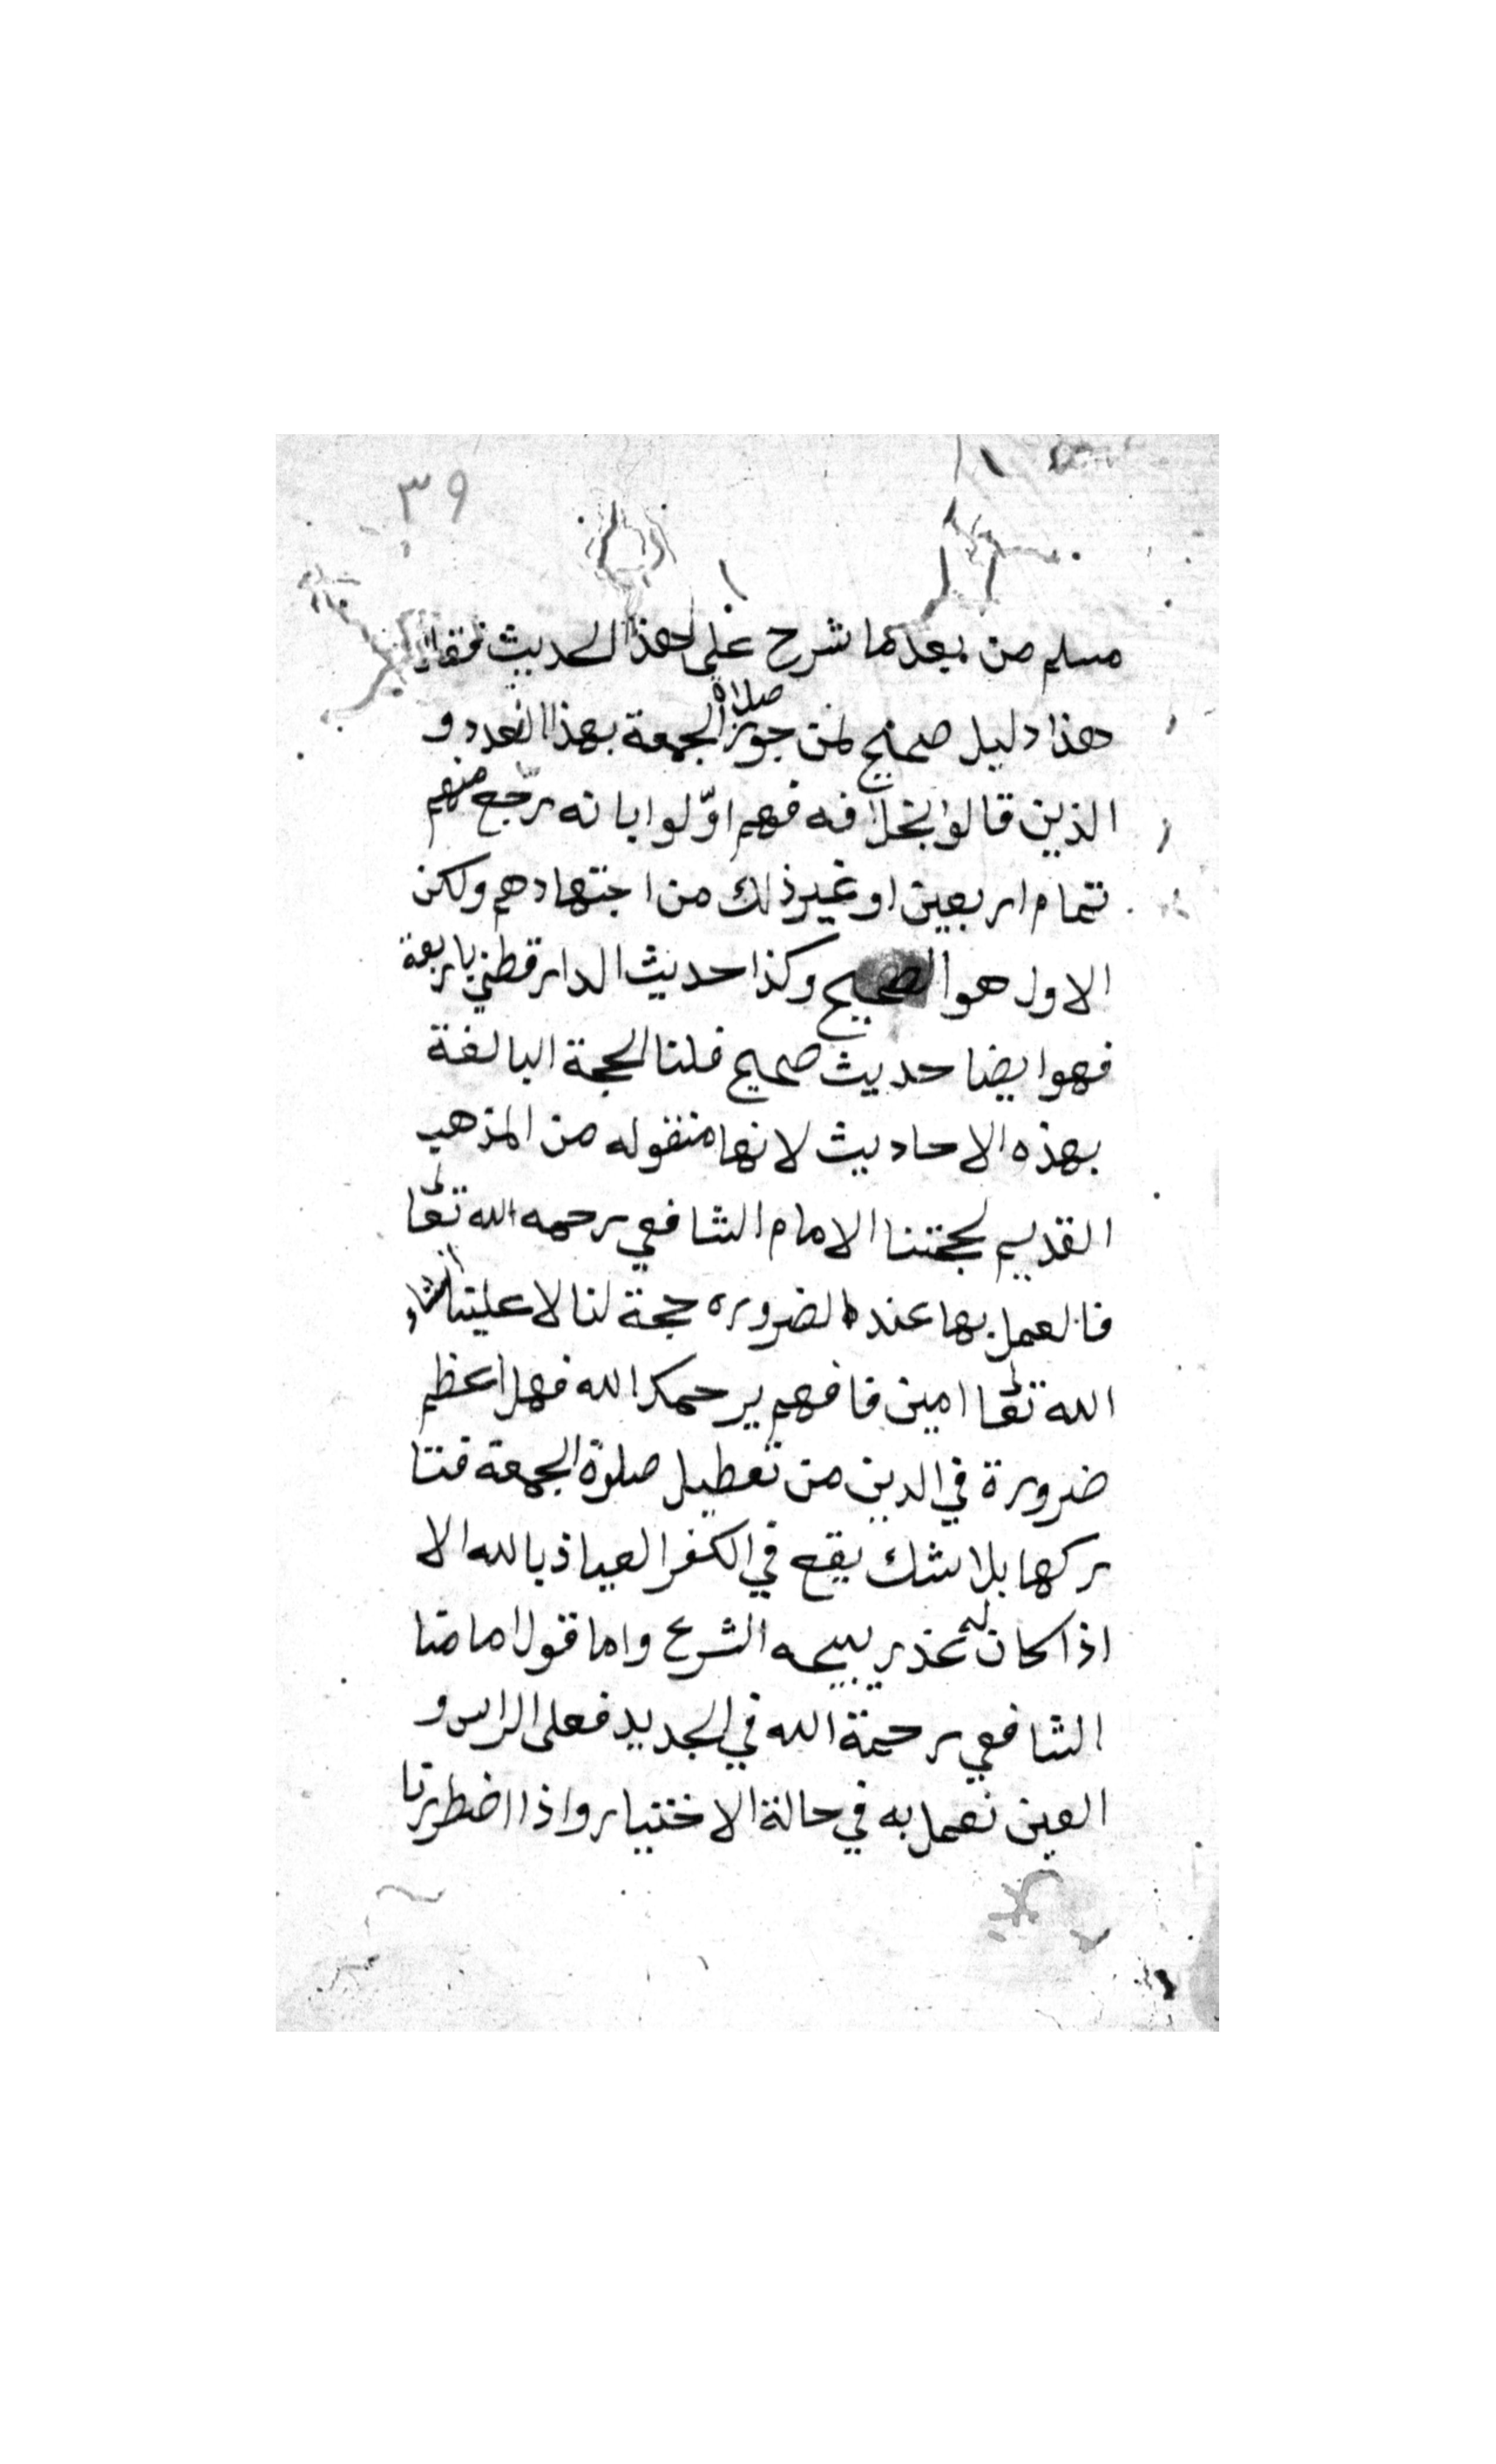 ٣٩
مسلم من بعدما شرح على هذا الحديث فقال
هذا دليل صحيح لمن جوز صلاة الجمعة بهذا العدد و
الذين قالوا بخلافه فهم اوّلوا بانه رجع منهم
تمام اربعين او غير ذلك من اجتهادهم ولكن
الاول هو الصحيح وكذا حديث الدارقطني باربعة
فهو ايضا حديث صحيح فلنا الحجة البالغة
بهذه الاحاديث لانها منقوله من المذهب
القديم لحجتنا الامام الشافعي رحمه الله تعا
فالعمل بها عند الضروره حجة لنا لا علينا انشاء
الله تعا امين فافهم يرحمك الله فهل اعظم
ضرورة في الدين من تعطيل صلوة الجمعة فتا
ركها بلا شك يقع في الكفر العياذ بالله الا
اذا كان له عذر يبيحه الشرع واما قول امامنا
الشافعي رحمة الله في الجديد فعلى الراس و
العين نعمل به في حالة الاختيار واذا اضطررنا